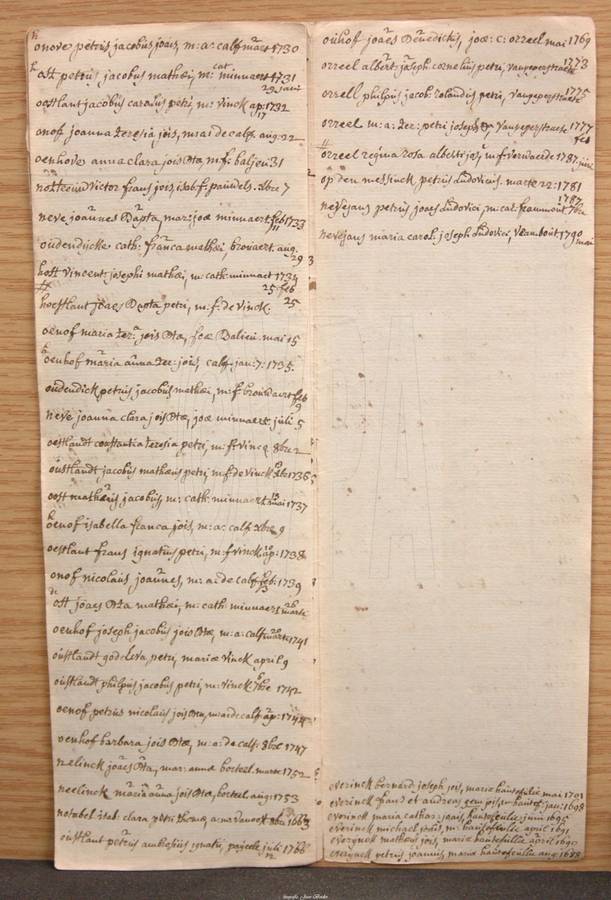 onove petrus jacobus joais, m: a: calf maert 1730
ost petrus, jacobus mathæi, m: cat. minnaert 1731
oostlant jacobus carolus petri, m: vinck ap: 1732
17
onof joanna teresia jois, m: a: de calf. aug: 32
oenhove anna clara jois Bta, m: f: baljeu 31
victor frans jois, isab: f: pauwels. xbre 7
neve joannes Bapta, mar: joæ minnaert feb 1733
11
oudendijcke cath: franca mathæi, brouaert. aug.
29
host vincent josephi mathæi, m: cath: minnaet 1734
25 feb
hoestlant joaes Bapta petri, m: f: de vinck.
25
oenof maria ter: jois Bta, Balieu. mai 15
oenhof maria anna ter: jois, calf. jan: 7: 1735.
oudendick petrus, jacobus mathæi, m: f: brouwaert feb
9
neve joanna clara jois Btæ, joæ minnaert. juli 5
oestlandt constantia teresia petri, m: f: vincq 8bre 2
oustlandt jacobus mathæus petri, m: f: de vinck xbr 1736
oost mathæus jacobus m: cath: minnaert mai 1737
oenof isabella franca jois, m: a: calf. xbre 9
oestlant frans ignatius petri, m: f: vinck ap: 1738
onof nicolaus joannes, m: a: de calf feb: 1739
ost joaes Bta mathæi, m: cath: minnaert marte
oenhof joseph jacobus jois Btæ, m: a: calf marte 1741
oustlandt godeleva, petri, mariæ vinck april 9
oustlandt philpus jacobus petri, m: vinck 7bre 1742
oenof petrus nicolaus jois Bta, m: a: de calf ap: 1744
oenhof barbara jois Btæ, m: a: de calf: 8bre 1747
nelinck joaes Bta, mar: anna borteel marte 1752
neelinck maria anna jois Bta, borteel aug: 1753
notabel isab: clara thomæ, 1663
oustlant petrus ambrosius ignatii, juli 1766
ouhof joaes Benedictus, joæ: c: orreel mai 1769
orreel albert: joseph cornelius petri, vangeperstraete 1773
orrell philpus jacob: rolandus petri, vangeperstraete 1775
orreel m: a: ter: petri joseph vangeperstraete 1777
feb
orreel regina rosa alberti jos, m: f: verwaerde 1787 juni
op den messinck, petrus Ludovicus. marte 22: 1781
nevejans petrus joaes Ludovici, m: cat: beaumont 7bre 1787
nevejans maria carol: joseph Ludovici, 1790
mai
everinck bernard joseph jois, mariæ hautefulie mai 1701
jan: 1698
everinck maria cathar: joais, hautefulie juni 1695
everinck michael joais, m: hautefullie april 1691
everynck mathæus jois, maria hautefullie april 1690
everynck petrus joannis, maria hautefeullie aug: 1688